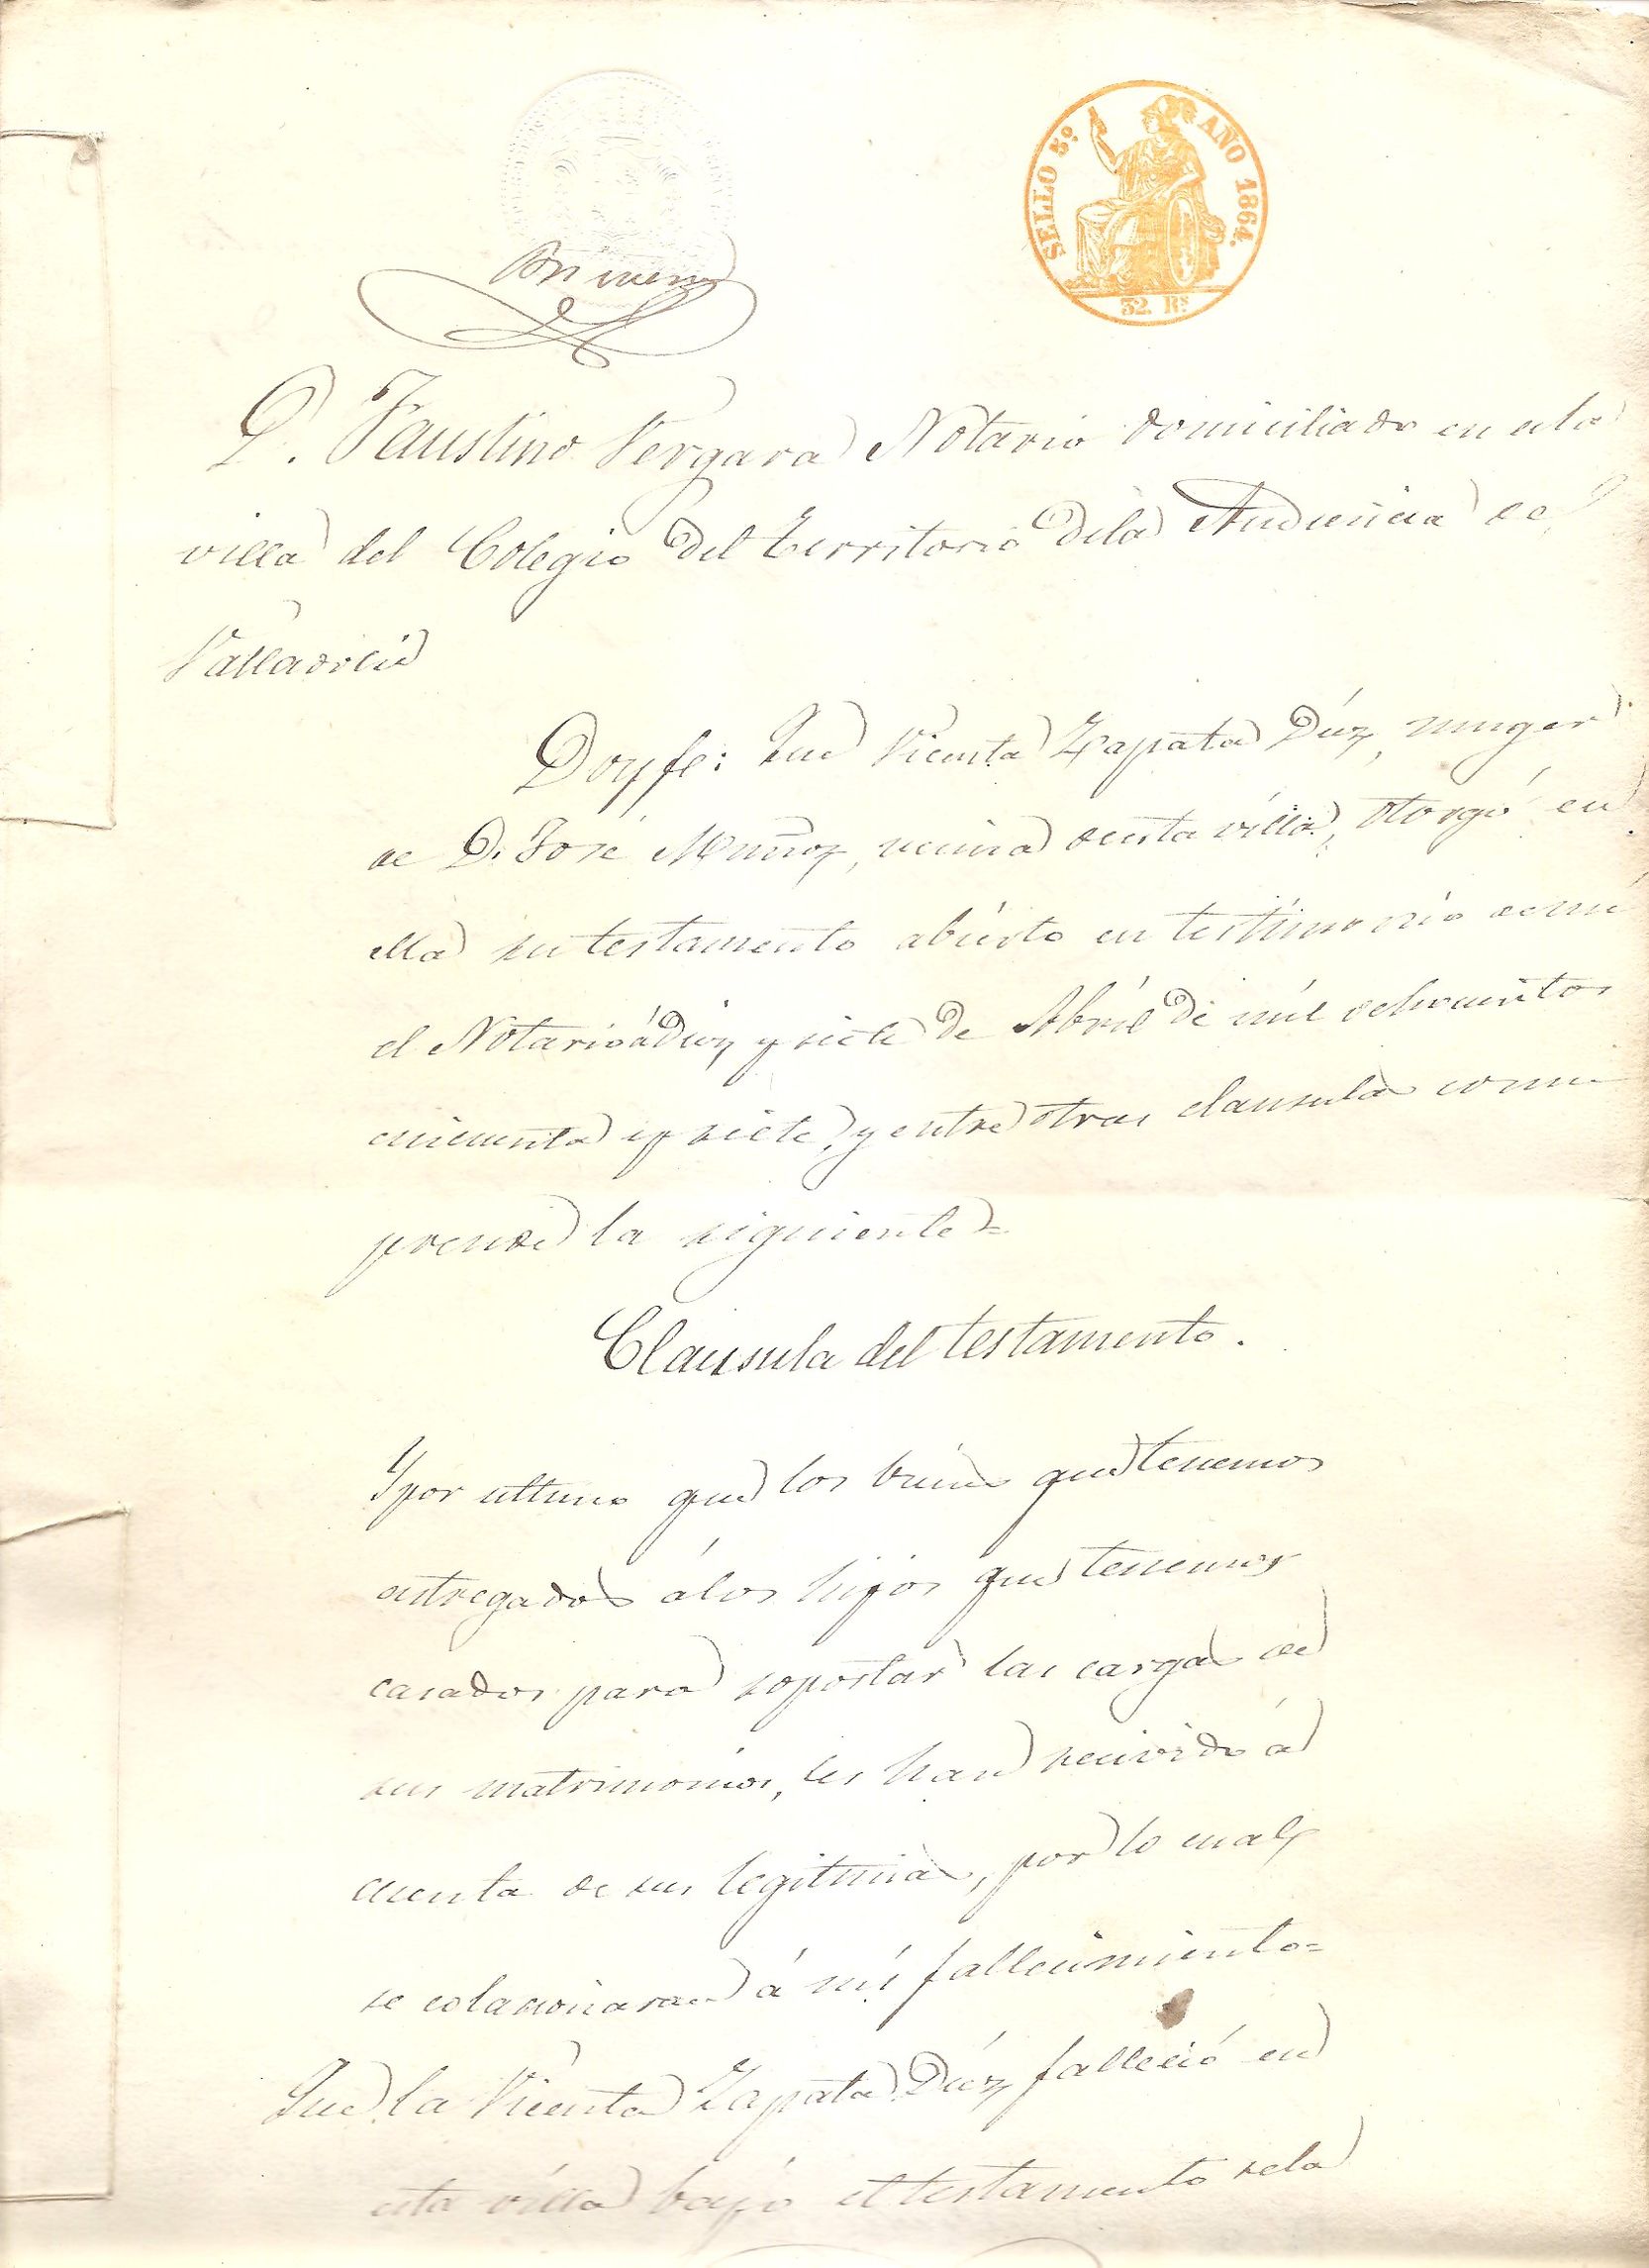 SELLO 5º AÑO 1864.
32. Rs.
D. Faustino Vergara Notario domiciliado en esta
villa del Colegio del Territorio dela Audiencia de
Valladolid
Doy fe: Que Vicenta Zapata Diez, muger
de D. José Muñoz, vecina de esta villa, otorgó en
ella su testamento abierto en testimonio de mi
el Notario á diez y siete de Abril de mil ochocientos
cincuenta y siete, y entre otras clausulas com
prende la siguiente=
Clausula del testamento.
Y por ultimo que los bienes que tenemos
entregados á los hijos que tenemos
casados para soportar las cargas de
sus matrimonios, les han recivido á
cuenta de sus legitimas, por lo cual
se colacionaran á mi fallecimiento=
Que la Vicenta Zapata Diez falleció en
esta villa bajo el testamento de la